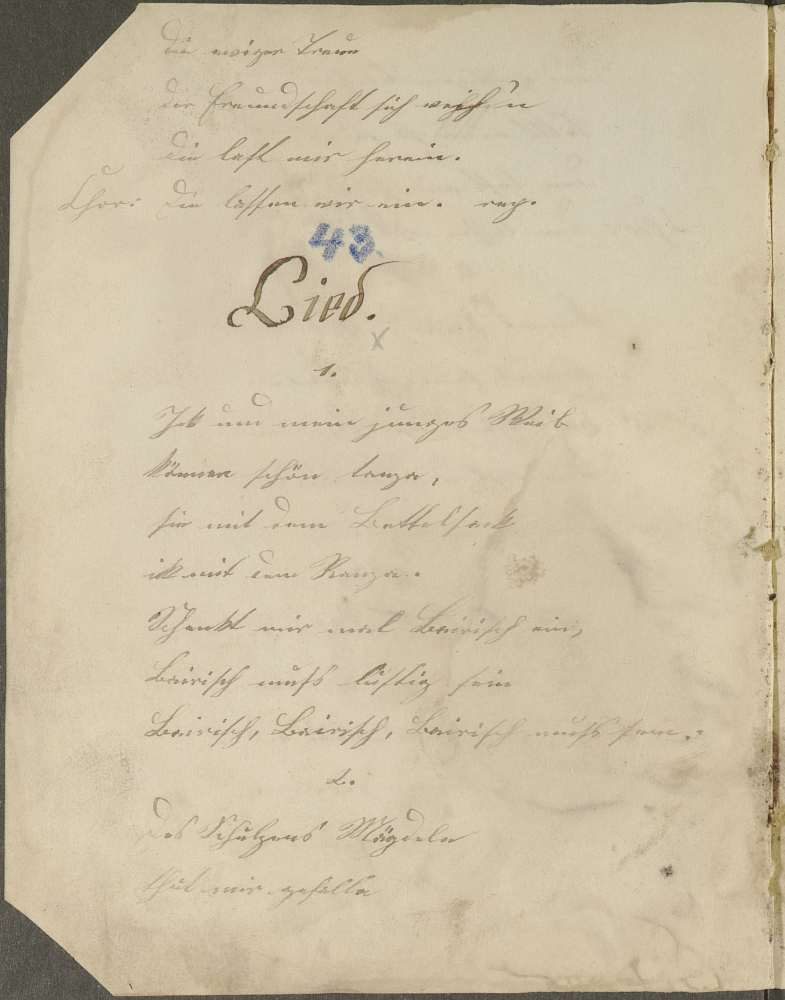 die ewiger Treue
der Freundschaft sich weih'n
die laßt mir herein.
Chor: Die lassen wir ein. rep.
43.
Lied.
x
1.
Ich und mein junges Weib
können schön tanza,
sie mit dem Bettelsack
ik mit dem Ranza.
Schenkt mir mal Bairisch ein,
Bairisch muß lustig sein
Bairisch, Bairisch, Bairisch muß sein.
2.
Des Schulzens' Mägdele
thut mir gefalle